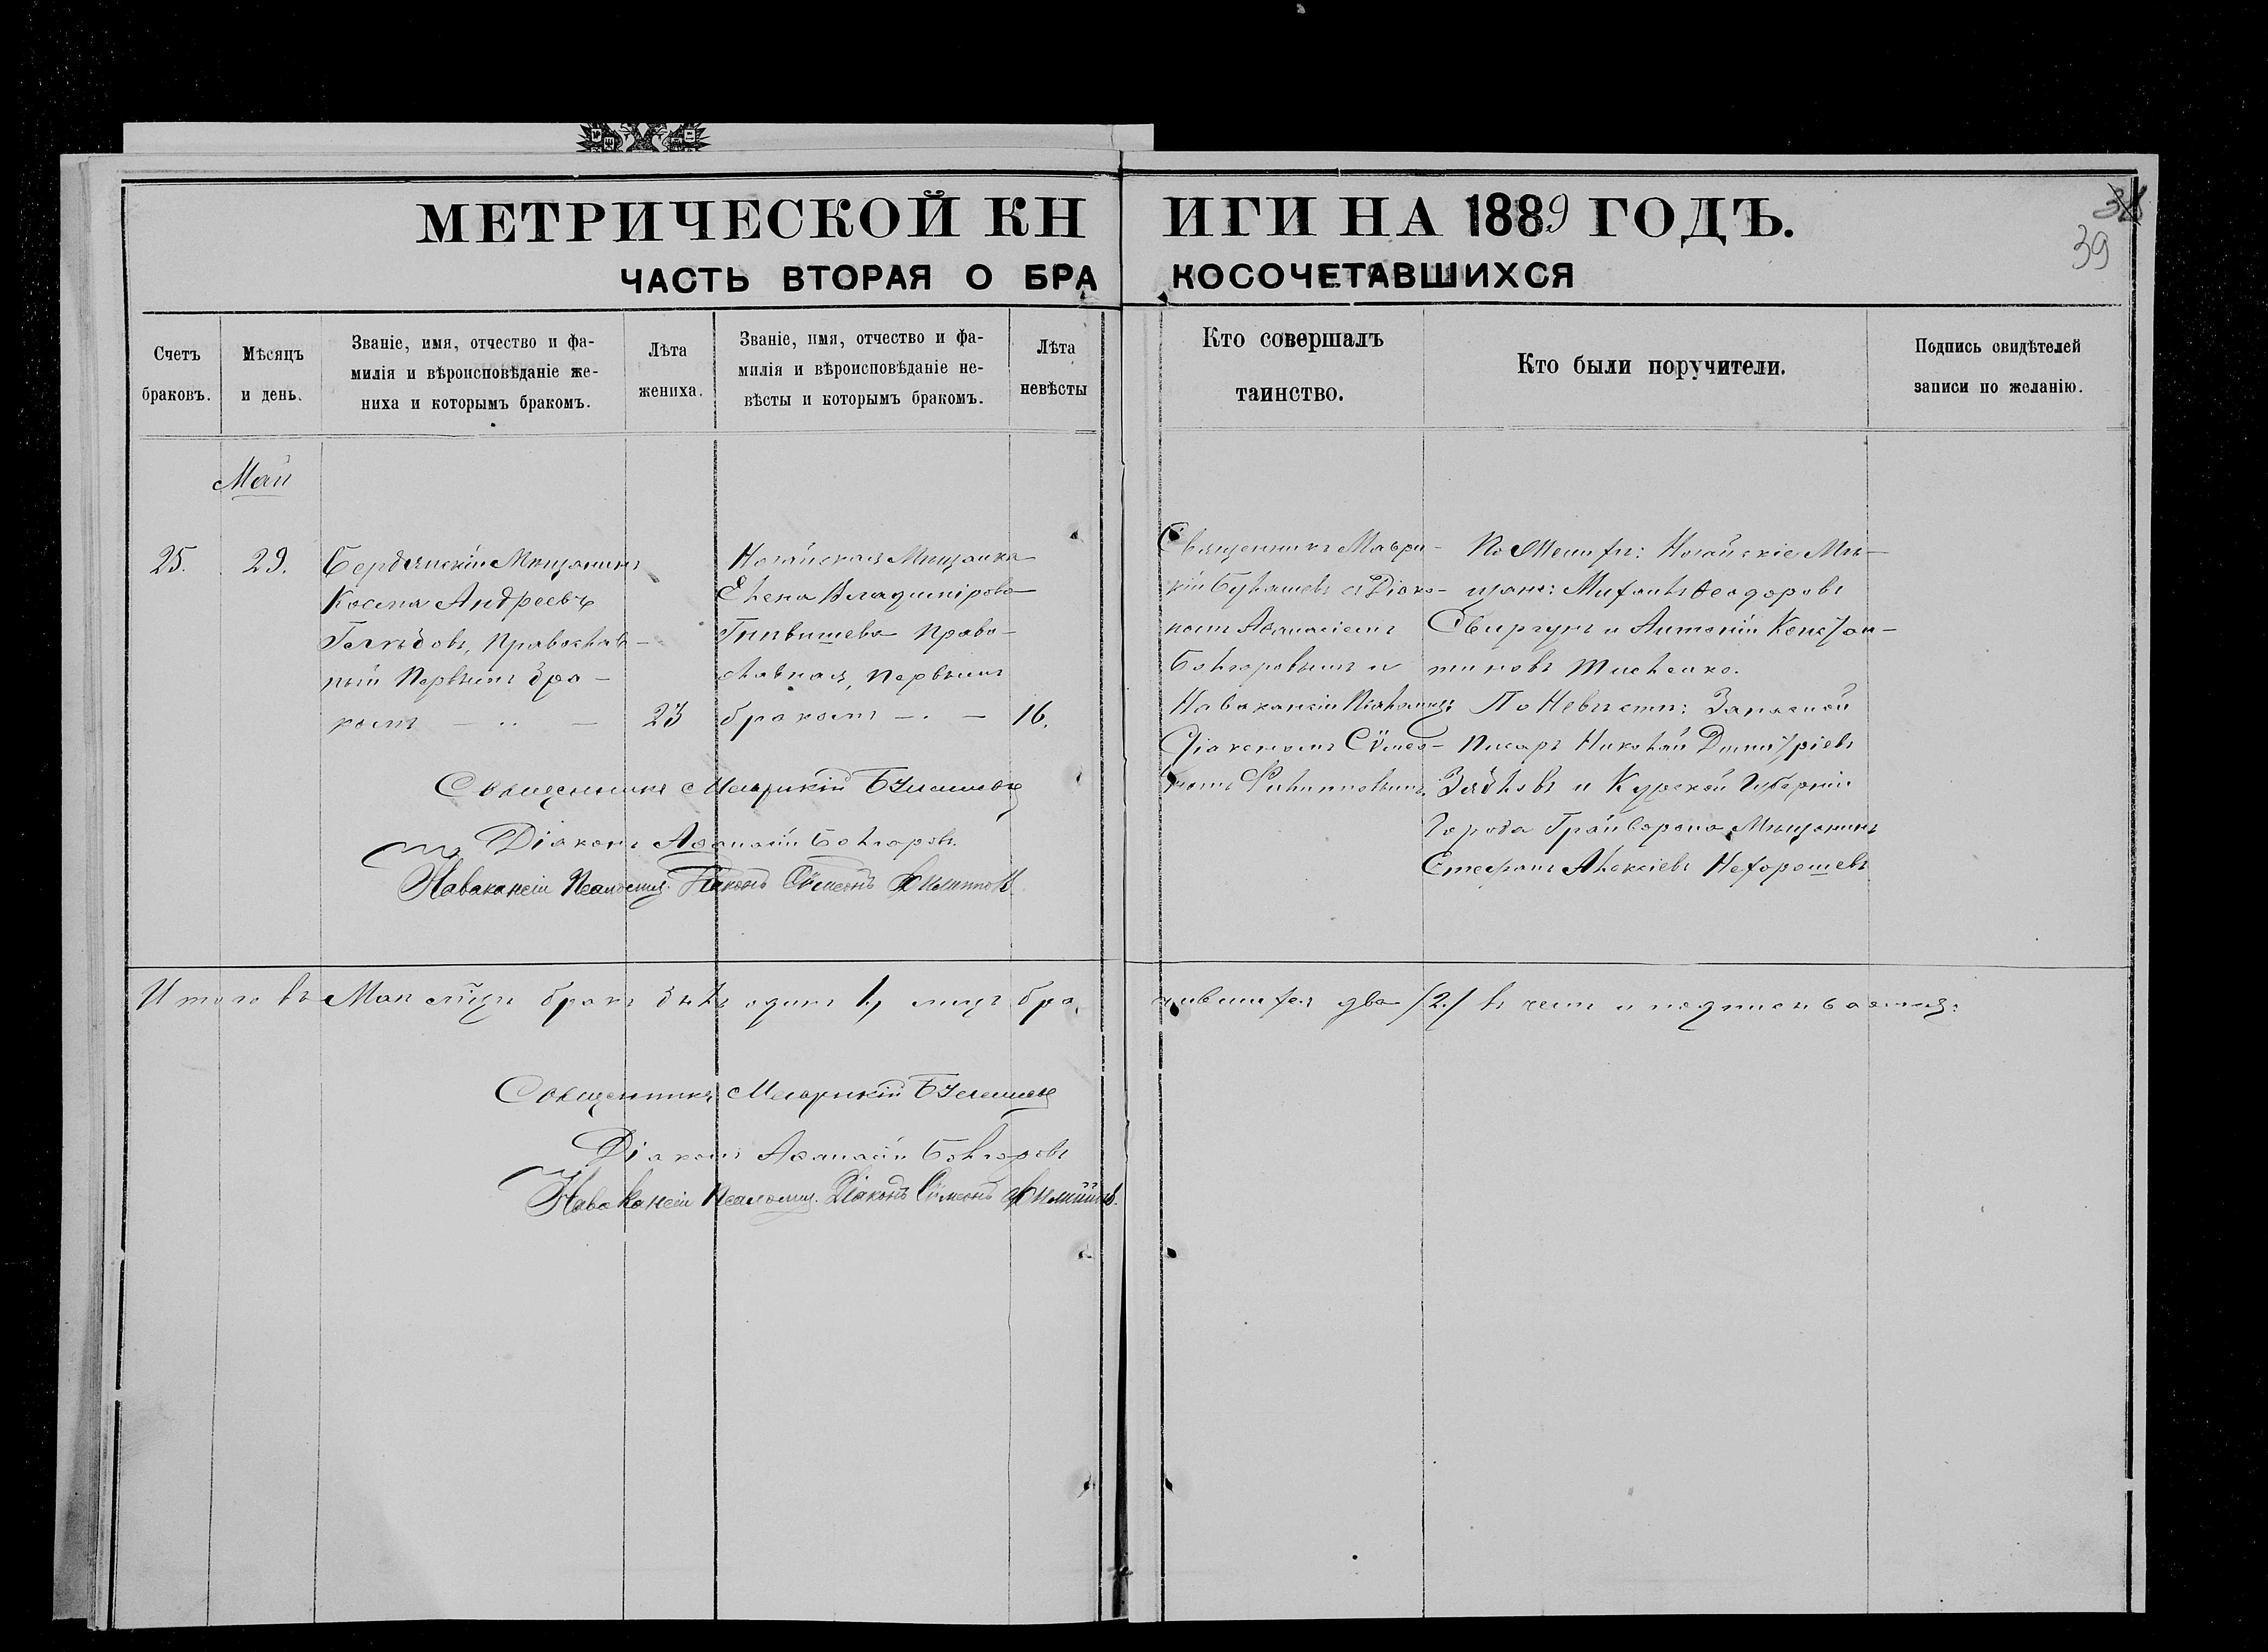 МЕТРИЧЕСКОЙ КНИГИ НА 1889 ГОДЪ.
38
39
ЧАСТЬ ВТОРАЯ О БРАКОСОЧЕТАВШИХСЯ
Счетъ
браковъ.
Мѣсяцъ
и день.
Званіе, имя, отчество и фа-
милія и вѣроисповѣданіе же-
ниха и которымъ бракомъ.
Лѣта
жениха.
Званіе, имя, отчество и фа-
милія и вѣроисповѣданіе не-
вѣсты и которымъ бракомъ.
Лѣта
невѣсты
Кто совершалъ
таинство.
Кто были поручители.
Подпись свидѣтелей
записи по желанію.
Май
25.
29.
Бердянскій Мѣщанинъ
Косма Андреевъ
Православ-
ный Первымъ бра-
комъ
23
Ногайская Мѣщанка
Елена Владимірова
Право-
славная, первымъ
бракомъ
16.
Священникъ Маври-
кій Букашевъ съ Діако-
номъ Аѳанасіемъ
Бокзаровымъ и
Навакансіи Псаломщ:
Діакономъ Сѵмео-
номъ Филипповымъ.
По Женихѣ: Ногайскіе Мѣ-
щане: Михаилъ Ѳеодоровъ
Свиргунъ и Антоній Констан-
тиновъ Тисленко.
По Невѣстѣ: Запасной
Писарь Николай Димитріевъ
Зайковъ и Курской Губерніи
Города Грайворона Мѣщанинъ
Стефанъ Алексіевъ Нехорошевъ
Священникъ Маврикій Букашевъ
Діаконъ Аѳанасій Бокзаровъ.
Навакансіи Псаломщ. Діаконъ Сѵмеонъ Филипповъ.
Итого въ Маѣ мѣсяцѣ бракъ былъ одинъ 1, лицъ бра-
чившихся два /2./ въ чемъ и подписываемся:
Священникъ Маврикій Букашевъ
Діаконъ Аѳанасій Бокзаровъ
Навакансіи Псаломщ. Діаконъ Сѵмеонъ Филипповъ.